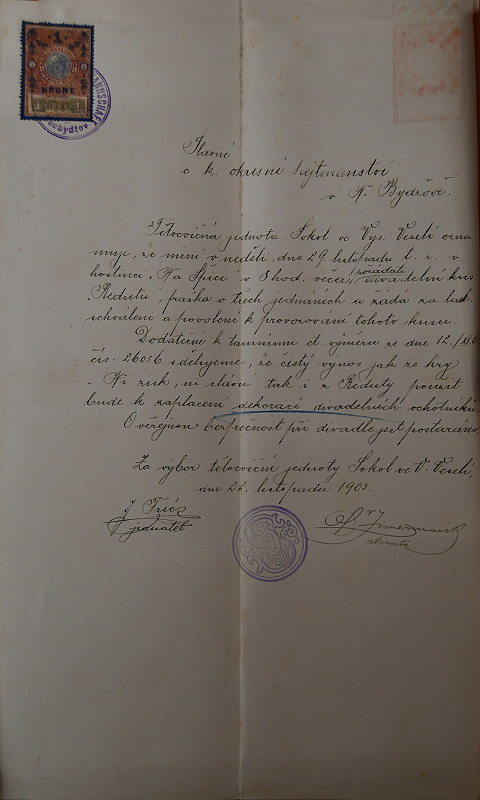 1
KRONE
Slavné
c k. okresní hejtmanství
v N. Bydžově.
Tělocvičná jednota Sokol ve Vys. Veselí ozna
muje, že míní v neděli, dne 29. listopadu t. r. v
hostinci „Na Špici" v 8 hod. večer, pořádati divadelní kus
„Reduta", fraška o třech jednáních a žádá za lask.
schválení a povolení k provozování tohoto kusu.
Dodatečně k tamnímu ct výměru ze dne 12./XI.
čís. 26036 sdělujeme, že čistý výnos jak ze hry
„Ni zisk, ni slávu" tak i z Reduty použit
bude k zaplacení dekorací divadelních ochotníků.
O veřejnou bezpečnost při divadle jest postaráno.
Za výbor tělocvičné jednoty Sokol ve V. Veselí,
dne 22. listopadu 1903.
jednatel.
starosta